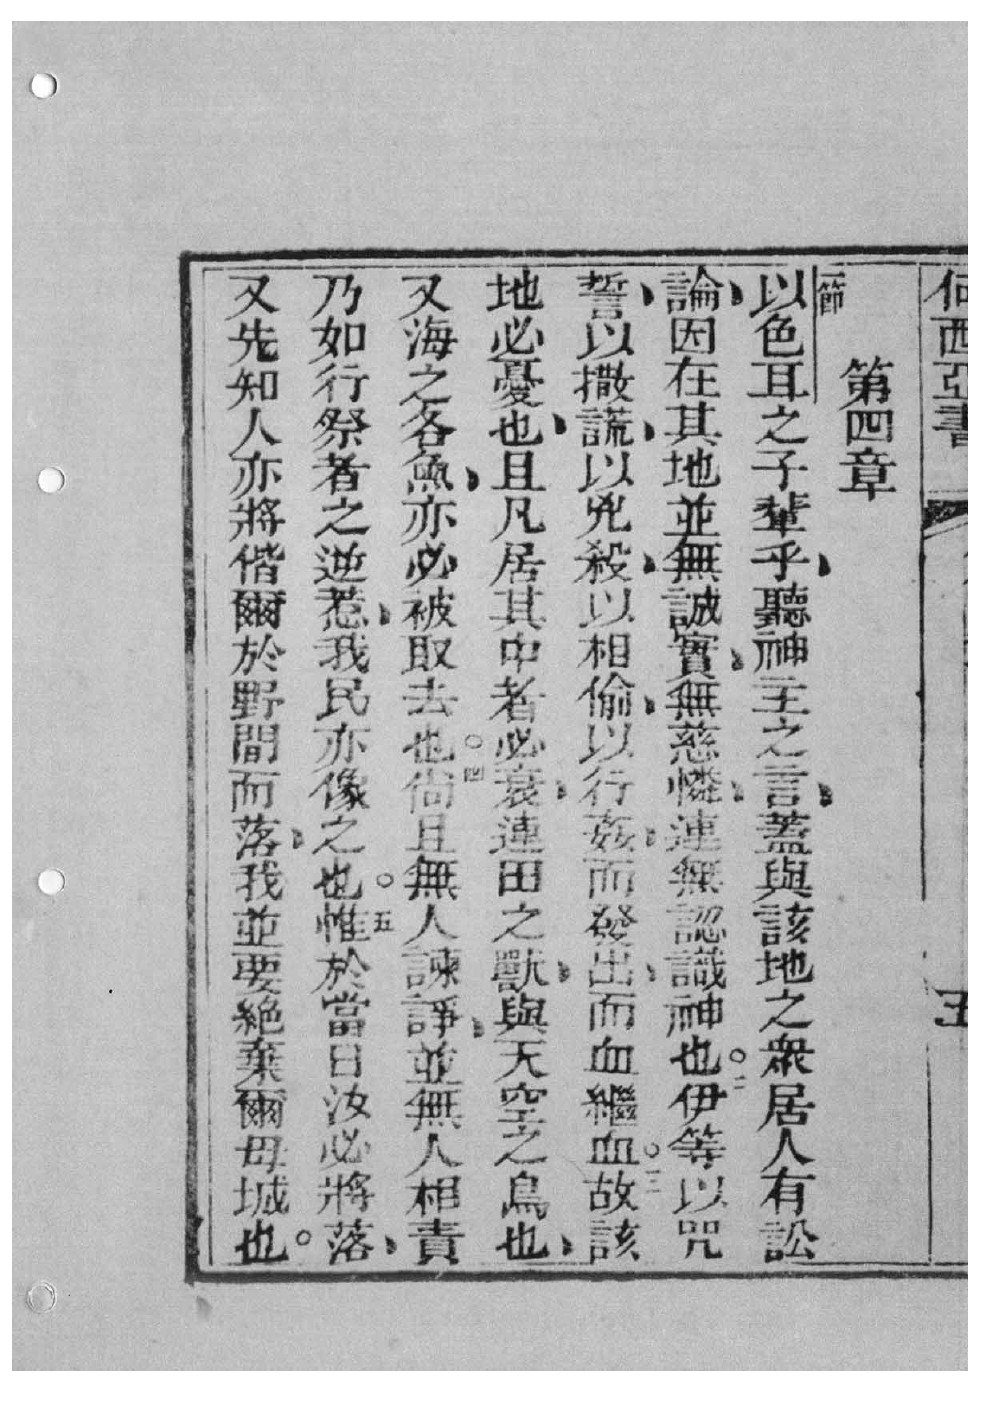 何西亞書 五
第四章
一節 以色耳之子輩乎、聽神主之言、蓋與該地之衆居人有訟
論、因在其地並無誠實、無慈憐、連無認識神也。二伊等以咒
誓、以撒謊、以兇殺、以相偷、以行姦、而發出、而血繼血。三故該
地必憂也、且凡居其中者必衰、連田之獸、與天空之鳥也、
又海之各魚、亦必被取去也。四尙且無人諫諍、並無人相責、
乃如行祭者之逆惹、我民亦像之也。五惟於當日汝必將落、
又先知人亦將偕爾於野間而落、我並要絕棄爾母城也。